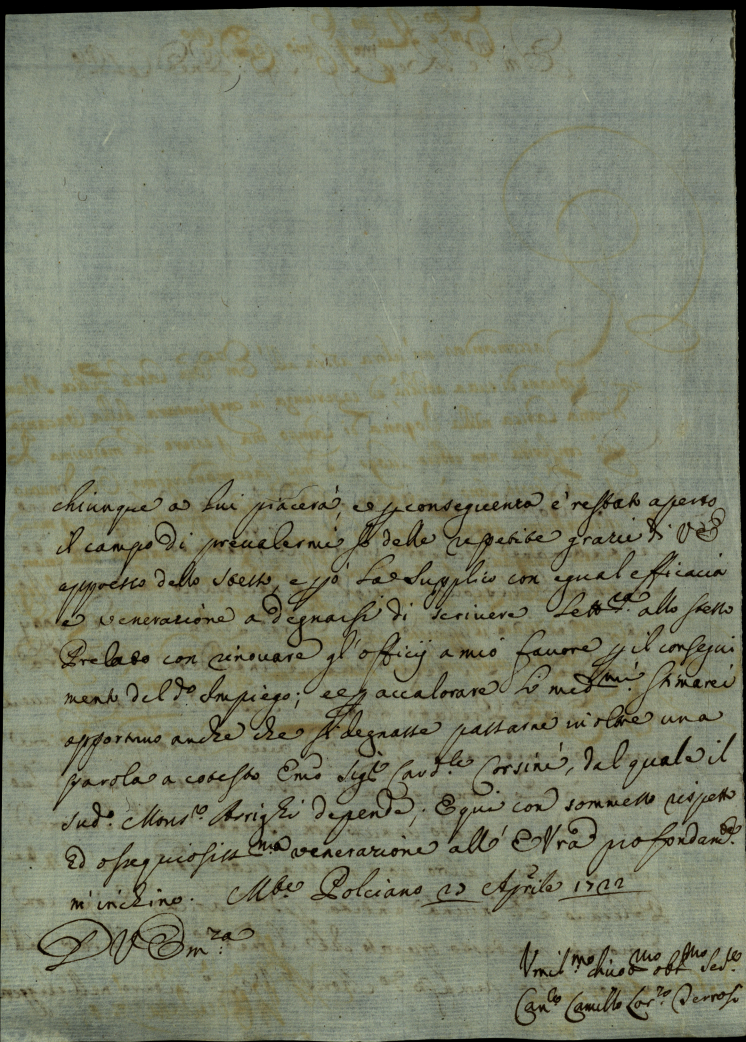 chiunque a Lui piacerà, e p conseguenza è restato aperto
il campo di prevalermi Io delle repetite grazie di VE
appresso dello stesso, e p ciò La Supplico con egual efficacia
e venerazione a degnarsi di scrivere Lettra allo stesso
Prelato con rinovare gl'officij a mio favore p il consegui
mento del do Impiego; e p accalorare li medmi stimarei
opportuno anche che si degnasse passarne inoltre una
parola a cotesto Emo Sigr Cardle Corsini, dal quale il
sudo Monsre depende; E qui con sommesso rispetto
Ed ossequiosissma venerazione all'E Vra profondamte
m'inchino. Mte Polciano 23 Aprile 1722
D V Emza
Umilmo obbmo
Canco Camillo